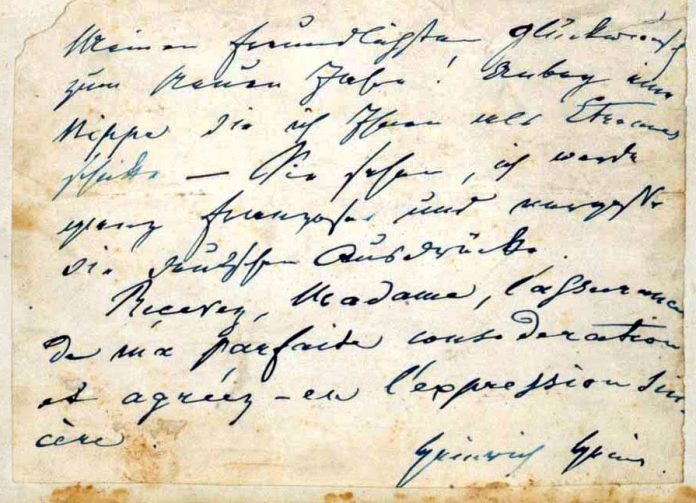 Meinen freundlichsten Glückwunsch
zum Neuen Jahr! Anbey eine
Nippe die ich Ihnen als Etrennes
schicke — Sie sehen, ich werde
ganz Franzose und vergesse
die deutschen Ausdrücke.
Recevez, Madame, l'assurance
de ma parfaite consideration
et agréez-en l'expression sin-
cère.
Heinrich Heine.